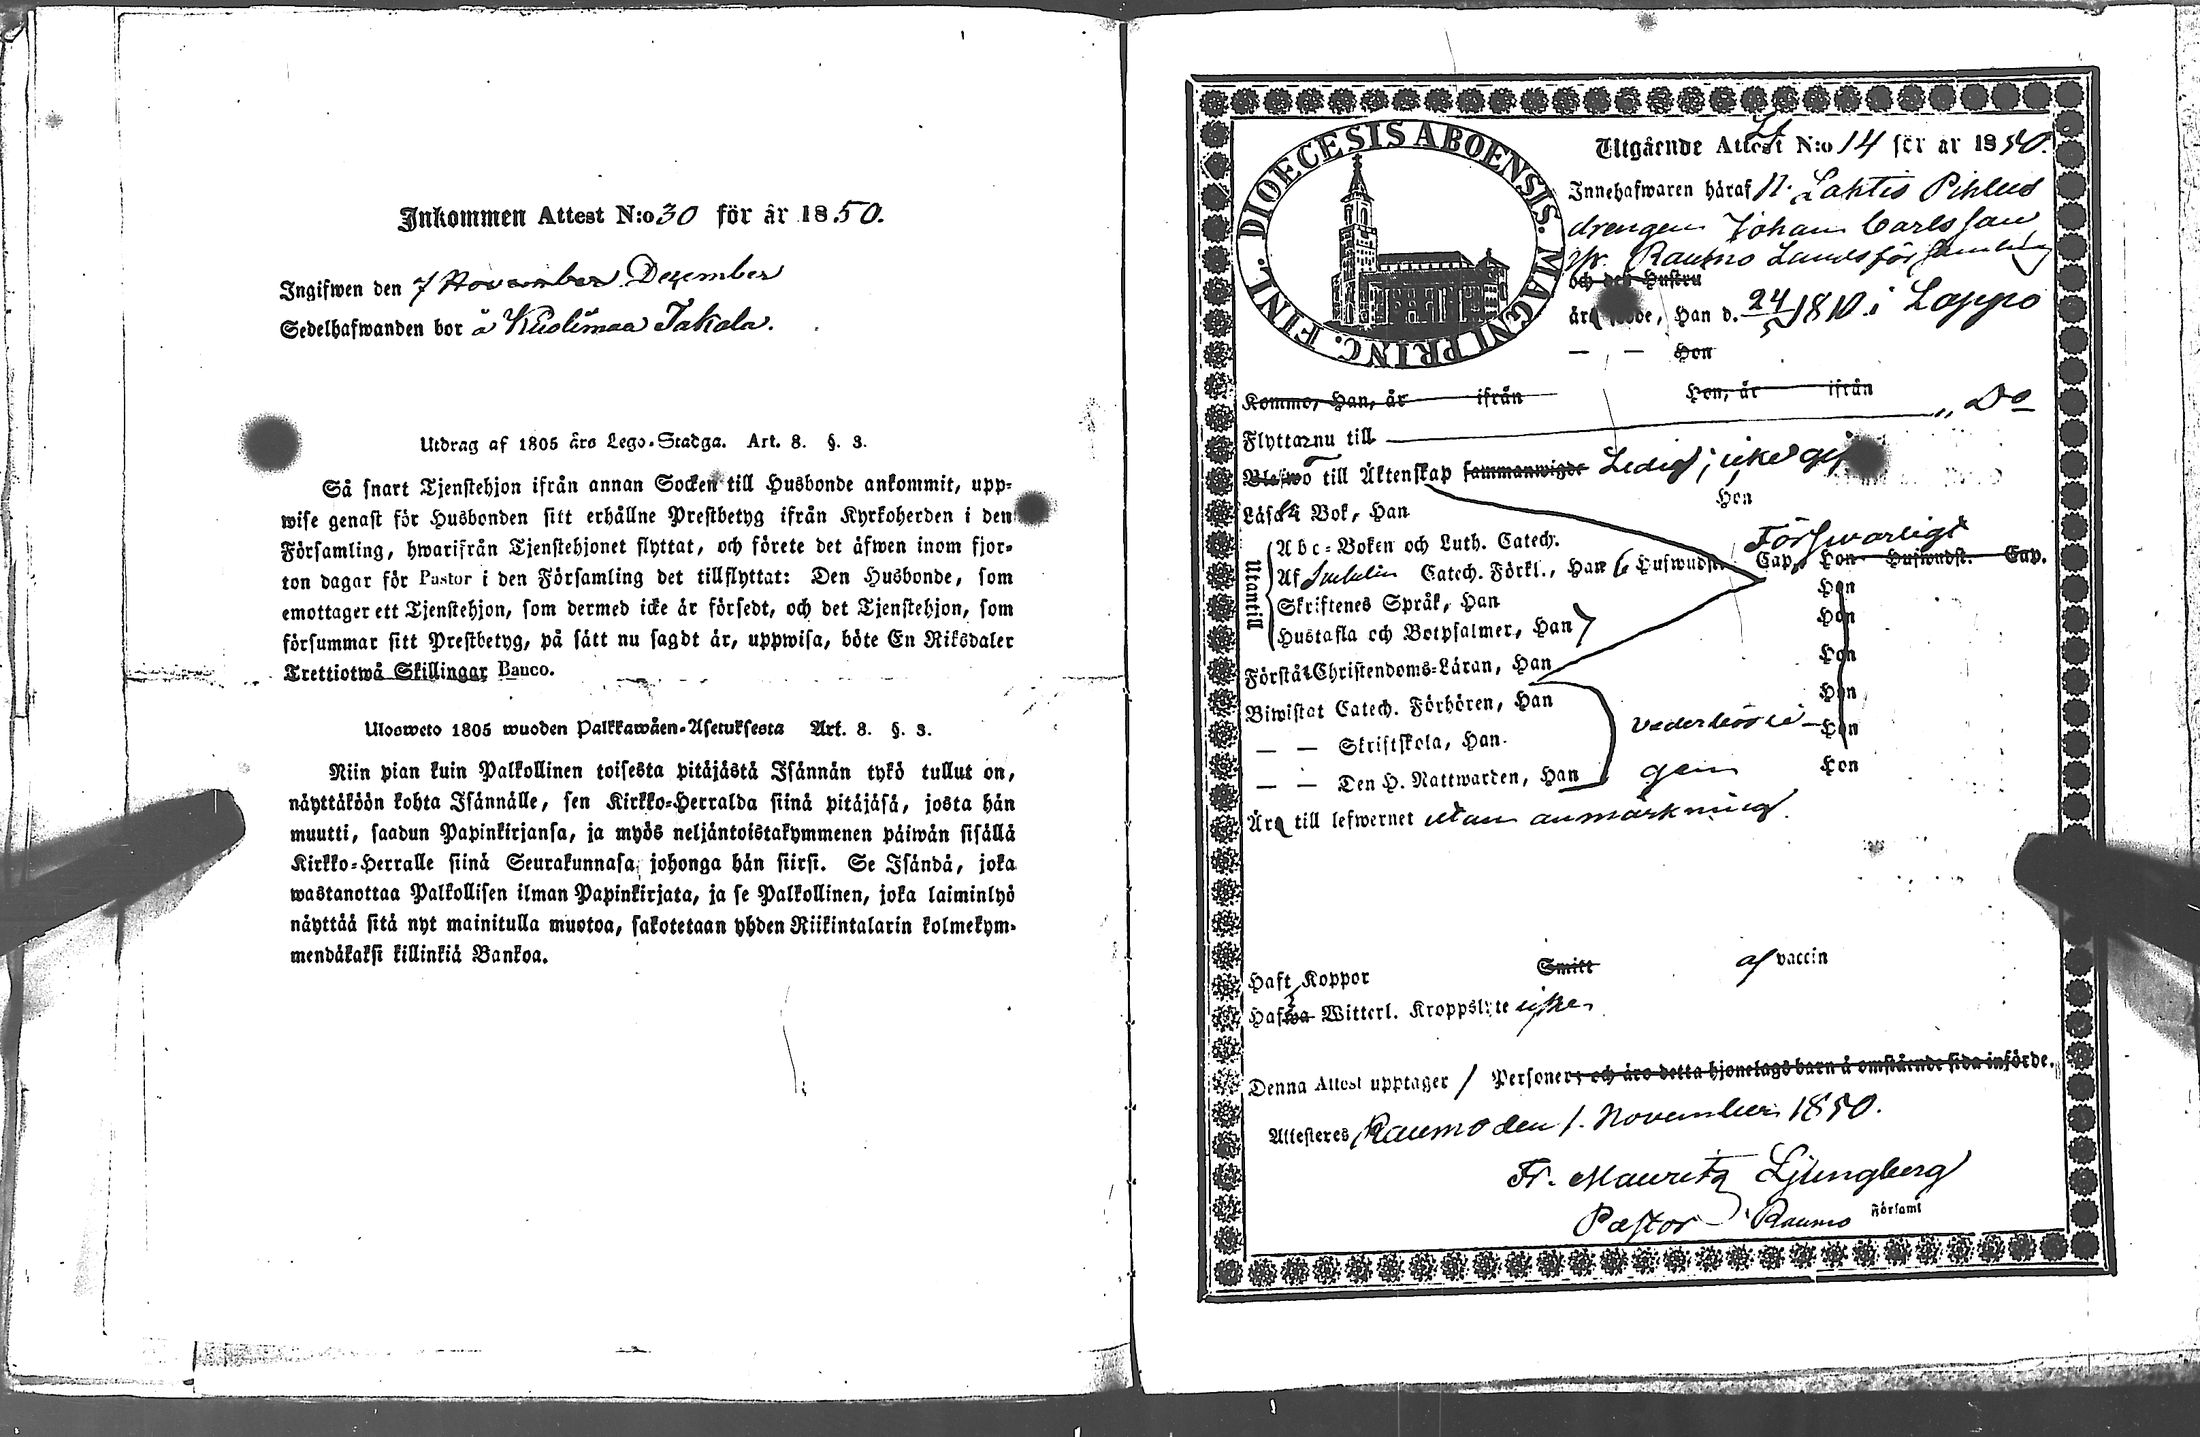 Inkommen Attest N:o 30 för år 1850.
Ingifwen den 7 November Dezember
Sedelhafwanden bor å Kuolimaa Jakala.
Utdrag af 1805 års Lego-Stadga. Art. 8. §. 3.
Så snart Tjenstehjon ifrån annan Socken till Husbonde ankommit, upp-
wise genast för Husbonden sitt erhållne Prestbetyg ifrån Kyrkoherden i den
Församling, hwarifrån Tjenstehjonet flyttat, och förete det äfwen inom fjor-
ton dagar för Pastor i den Församling det tillflyttat: Den Husbonde, som
emottager ett Tjenstehjon, som dermed icke är försedt, och det Tjenstehjon, som
försummar sitt Prestbetyg, på sätt nu sagdt är, uppwisa, böte En Riksdaler
Trettiotwå Skillingar Banco.
Ulosweto 1805 wuoden Palkkawäen-Asetuksesta Art. 8. §. 3.
Niin pian kuin Palkollinen toisesta pitäjästä Isännän tykö tullut on,
näyttäköön kohta Isännälle, sen Kirkko-Herralda siinä pitäjäsä, josta hän
muutti, saadun Papinkirjansa, ja myös neljäntoistakymmenen päiwän sisällä
Kirkko-Herralle siinä Seurakunnasa, johonga hän siirsi. Se Isändä, joka
wastanottaa Palkollisen ilman Papinkirjata, ja se Palkollinen, joka laiminlyö
näyttää sitä nyt mainitulla muotoa, sakotetaan yhden Riikintalarin kolmekym-
mendäkaksi killinkiä Bankoa.
DIOECESIS ABOENSIS. MAGNI PRINC. FINL.
Utgående Attest N:o 14 för år 1850.
Innehafwaren häraf N. Lahtis Pihlus
drengen Johan Carlsson
fr. Raumo Landsförsamling
och des Hustru
äro födde, Han d. 24/5 1810 i Lappo
— — Hon
Kommo, Han, år ifrån Hon, år ifrån
Flyttar nu till " Do
Blefwo till Äktenskap sammanwigde Ledig; icke gift
Hon
Läser i Bok, Han
Försvarligt
Utantill
Abc-Boken och Luth. Catech.
Af Catech. Förkl., Han 6 Hufwudst. Cap. Hon Hufwudst. Cap.
Skriftenes Språk, Han Hon
Hustafla och Botpsalmer, Han Hon
Förstår Christendoms-Läran, Han Hon
Biwistat Catech. Förhören, Han Hon
— — Skriftskola, Han vederbörli- Hon
— — Den H. Nattwarden, Han gen Hon
Är till lefwernet utan anmärkning
Haft Koppor Smitt af vaccin
Hafwa Witterl. Kroppslyte icke
Denna Attest upptager 1 Personer; och äro detta hjonelags barn å omstående sida införde.
Attesteres Raumo den 1. November 1850.
Fr. Mauritz Ljungberg
Pastor i Raumo Församl